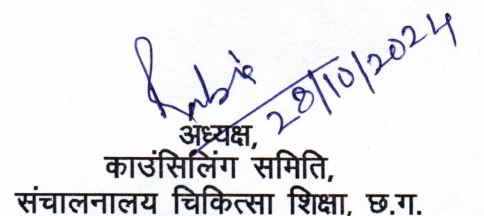 28/10/2024
अध्यक्ष,
काउंसिलिंग समिति,
संचालनालय चिकित्सा शिक्षा, छ.ग.